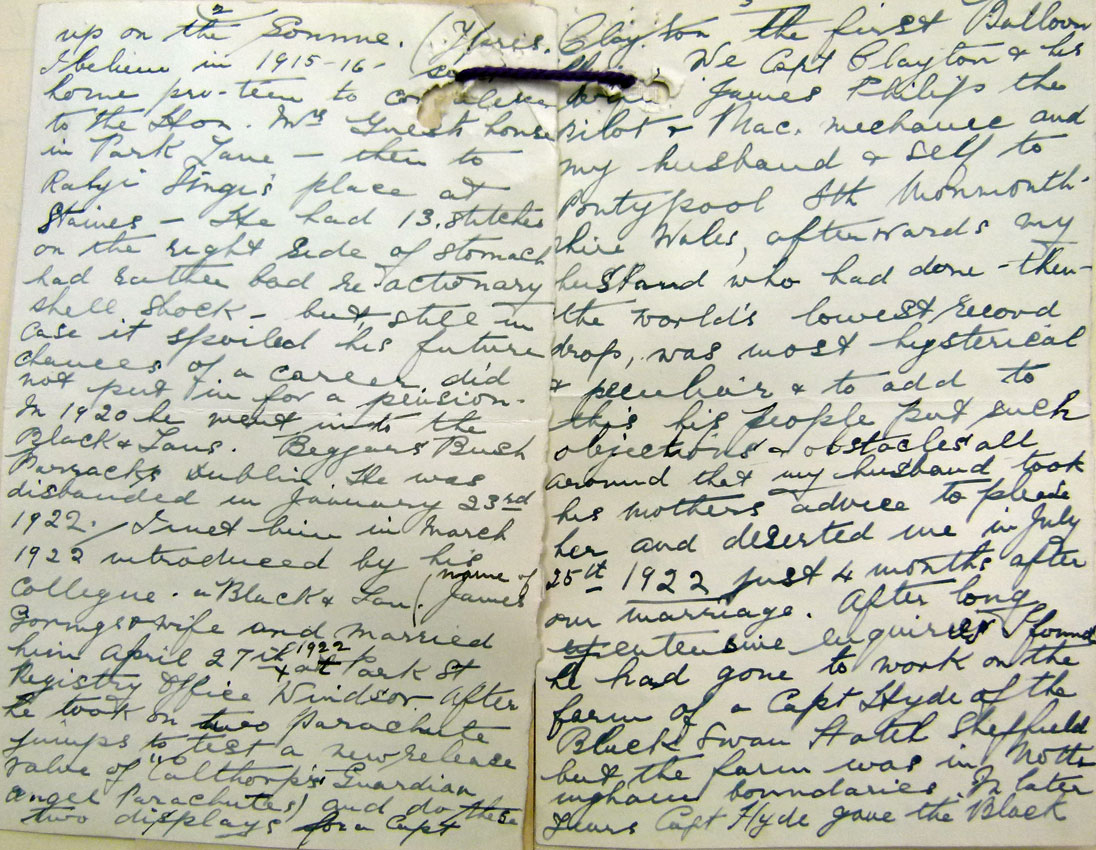 2
up on the Somme. (Ypres.
I believe in 1915-16-
home pro-teem to
to the Hon. Mrs Guest house
in Park Lane — then to
Ratyi Singi's place at
Staines — He had 13. stitches
on the right side of stomach
had rather bad re actionary
shell shock — but, still in
case it spoiled his future
chances of a career, did
not put in for a pension.
In 1920 he went into the
Black & Tans. Beggars Bush
Barracks Dublin He was
disbanded in January 23rd
1922. / I met him in March
1922 introduced by his
collegue. a Black & Tan. (name of James
Gorings & wife and married
him April 27th 1922 at Park St
Registry Office Windsor. After
he took on two parachute
jumps to test a new release
valve of "Calthorp's Guardian
Angel Parachutes) and do these
two displays for a Capt
3
Clayton the first Balloon
We Capt Clayton & his
James Philips the
pilot & Mac. mechanic and
my husband & self to
Pontypool Sth Monmouth-
shire Wales, afterwards my
husband who had done - then -
the world's lowest record
drop, was most hysterical
& peculiar & to add to
this his people put such
objections & obstacles all
around that my husband took
his mothers advice to please
her and deserted me in July
25th 1922 just 4 months after
our marriage. After long
extensive enquiries I found
he had gone to work on the
farm of a Capt Hyde of the
Black Swan Hotel Sheffield
but the farm was in Nott
ingham boundaries. In later
years Capt Hyde gave the Black